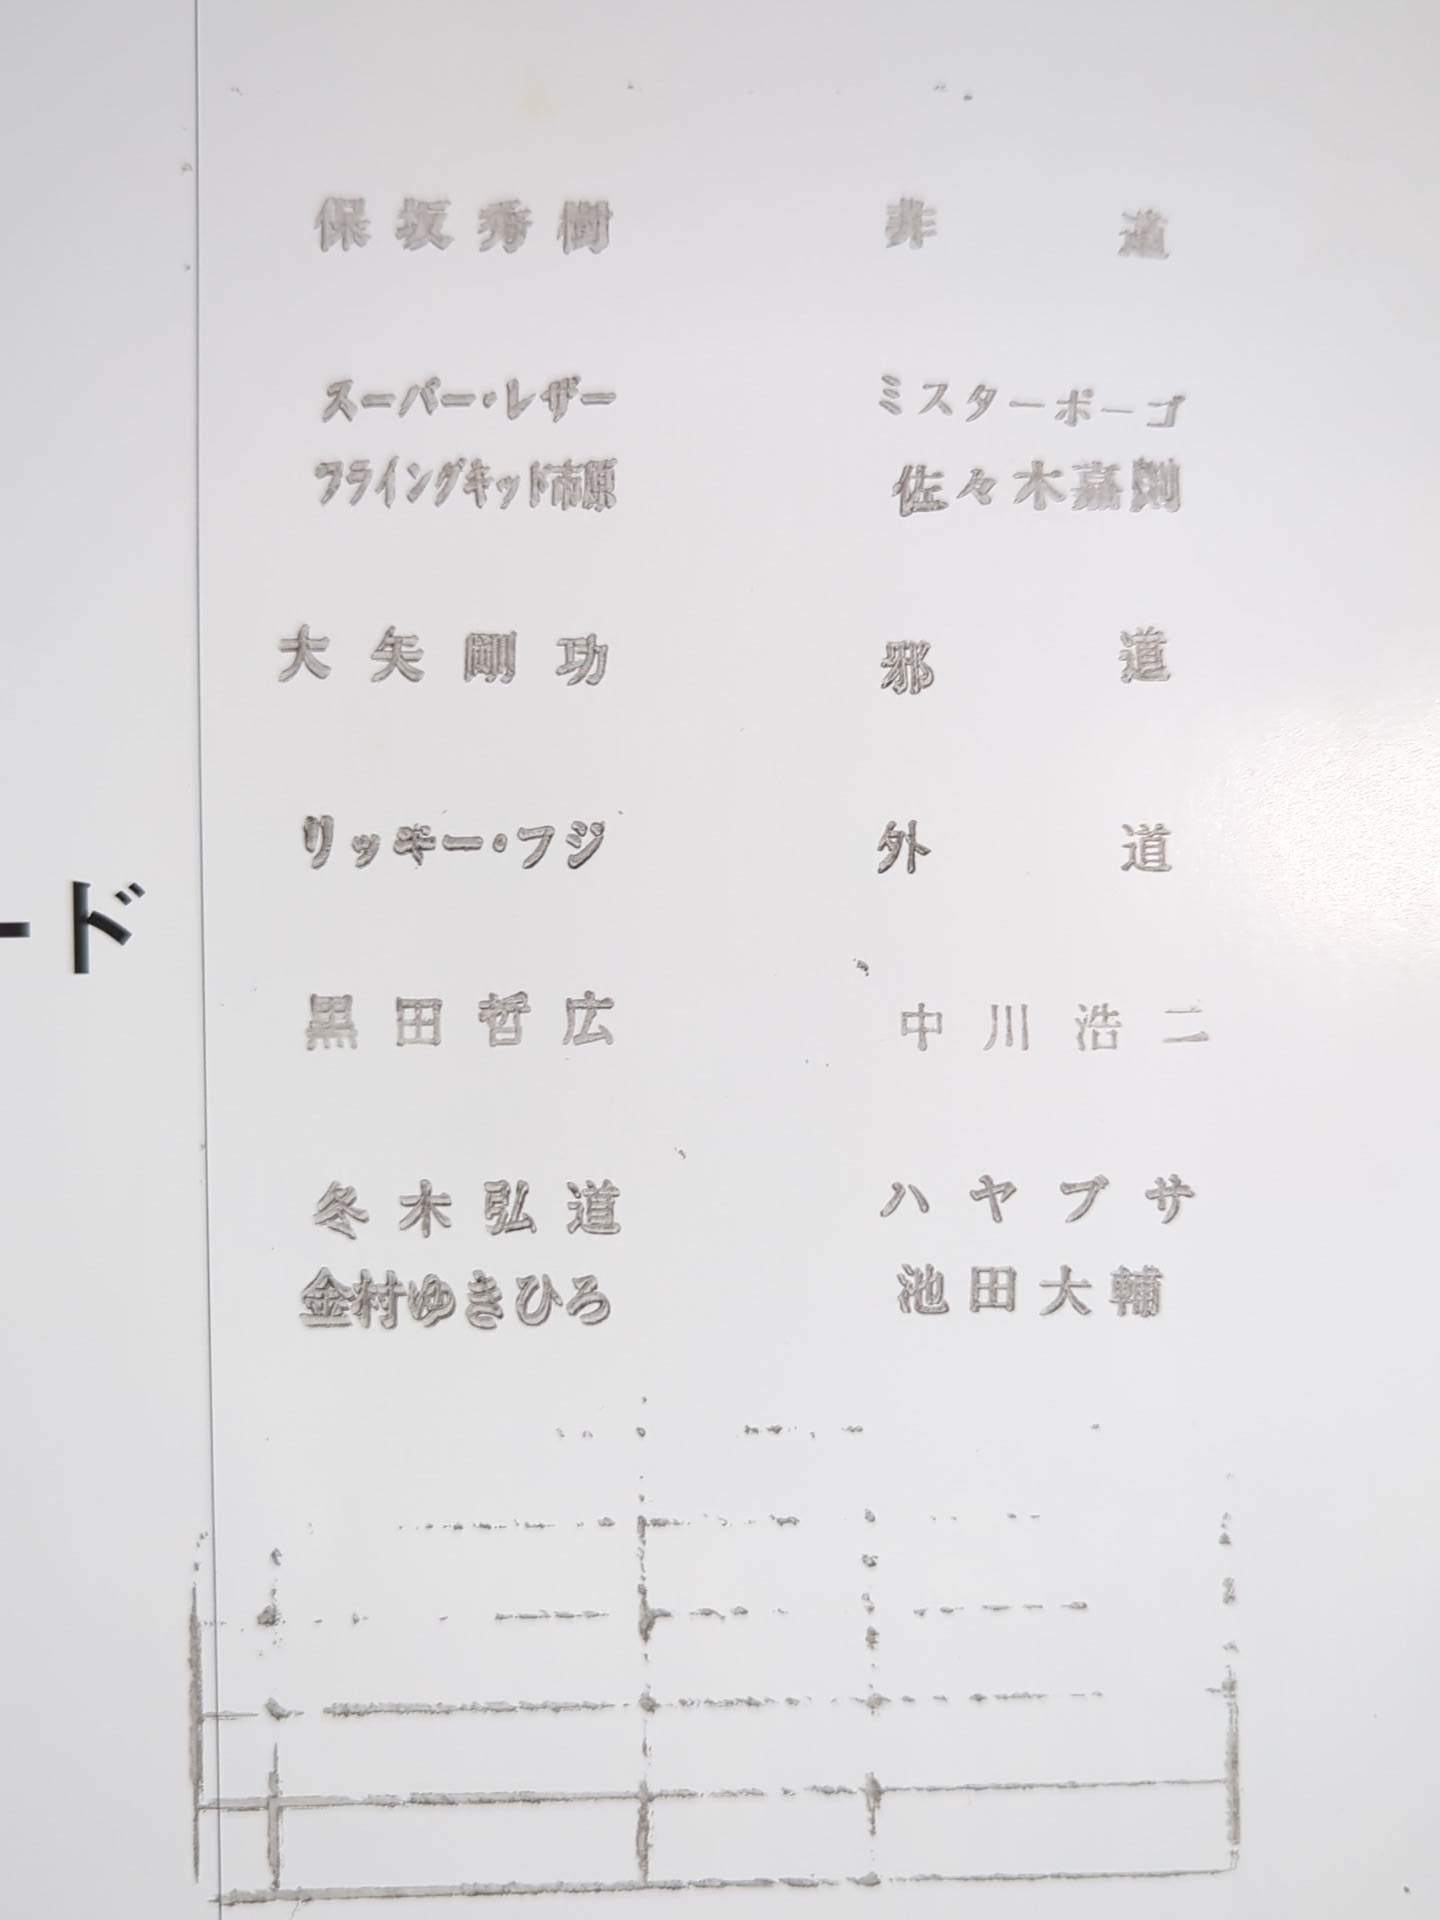 保坂秀樹 非道
スーパー・レザー ミスターポーゴ
フライングキッド市原 佐々木嘉則
大矢剛功 邪道
リッキー・フジ 外道
ード
黒田哲広 中川浩二
冬木弘道 ハヤブサ
金村ゆきひろ 池田大輔